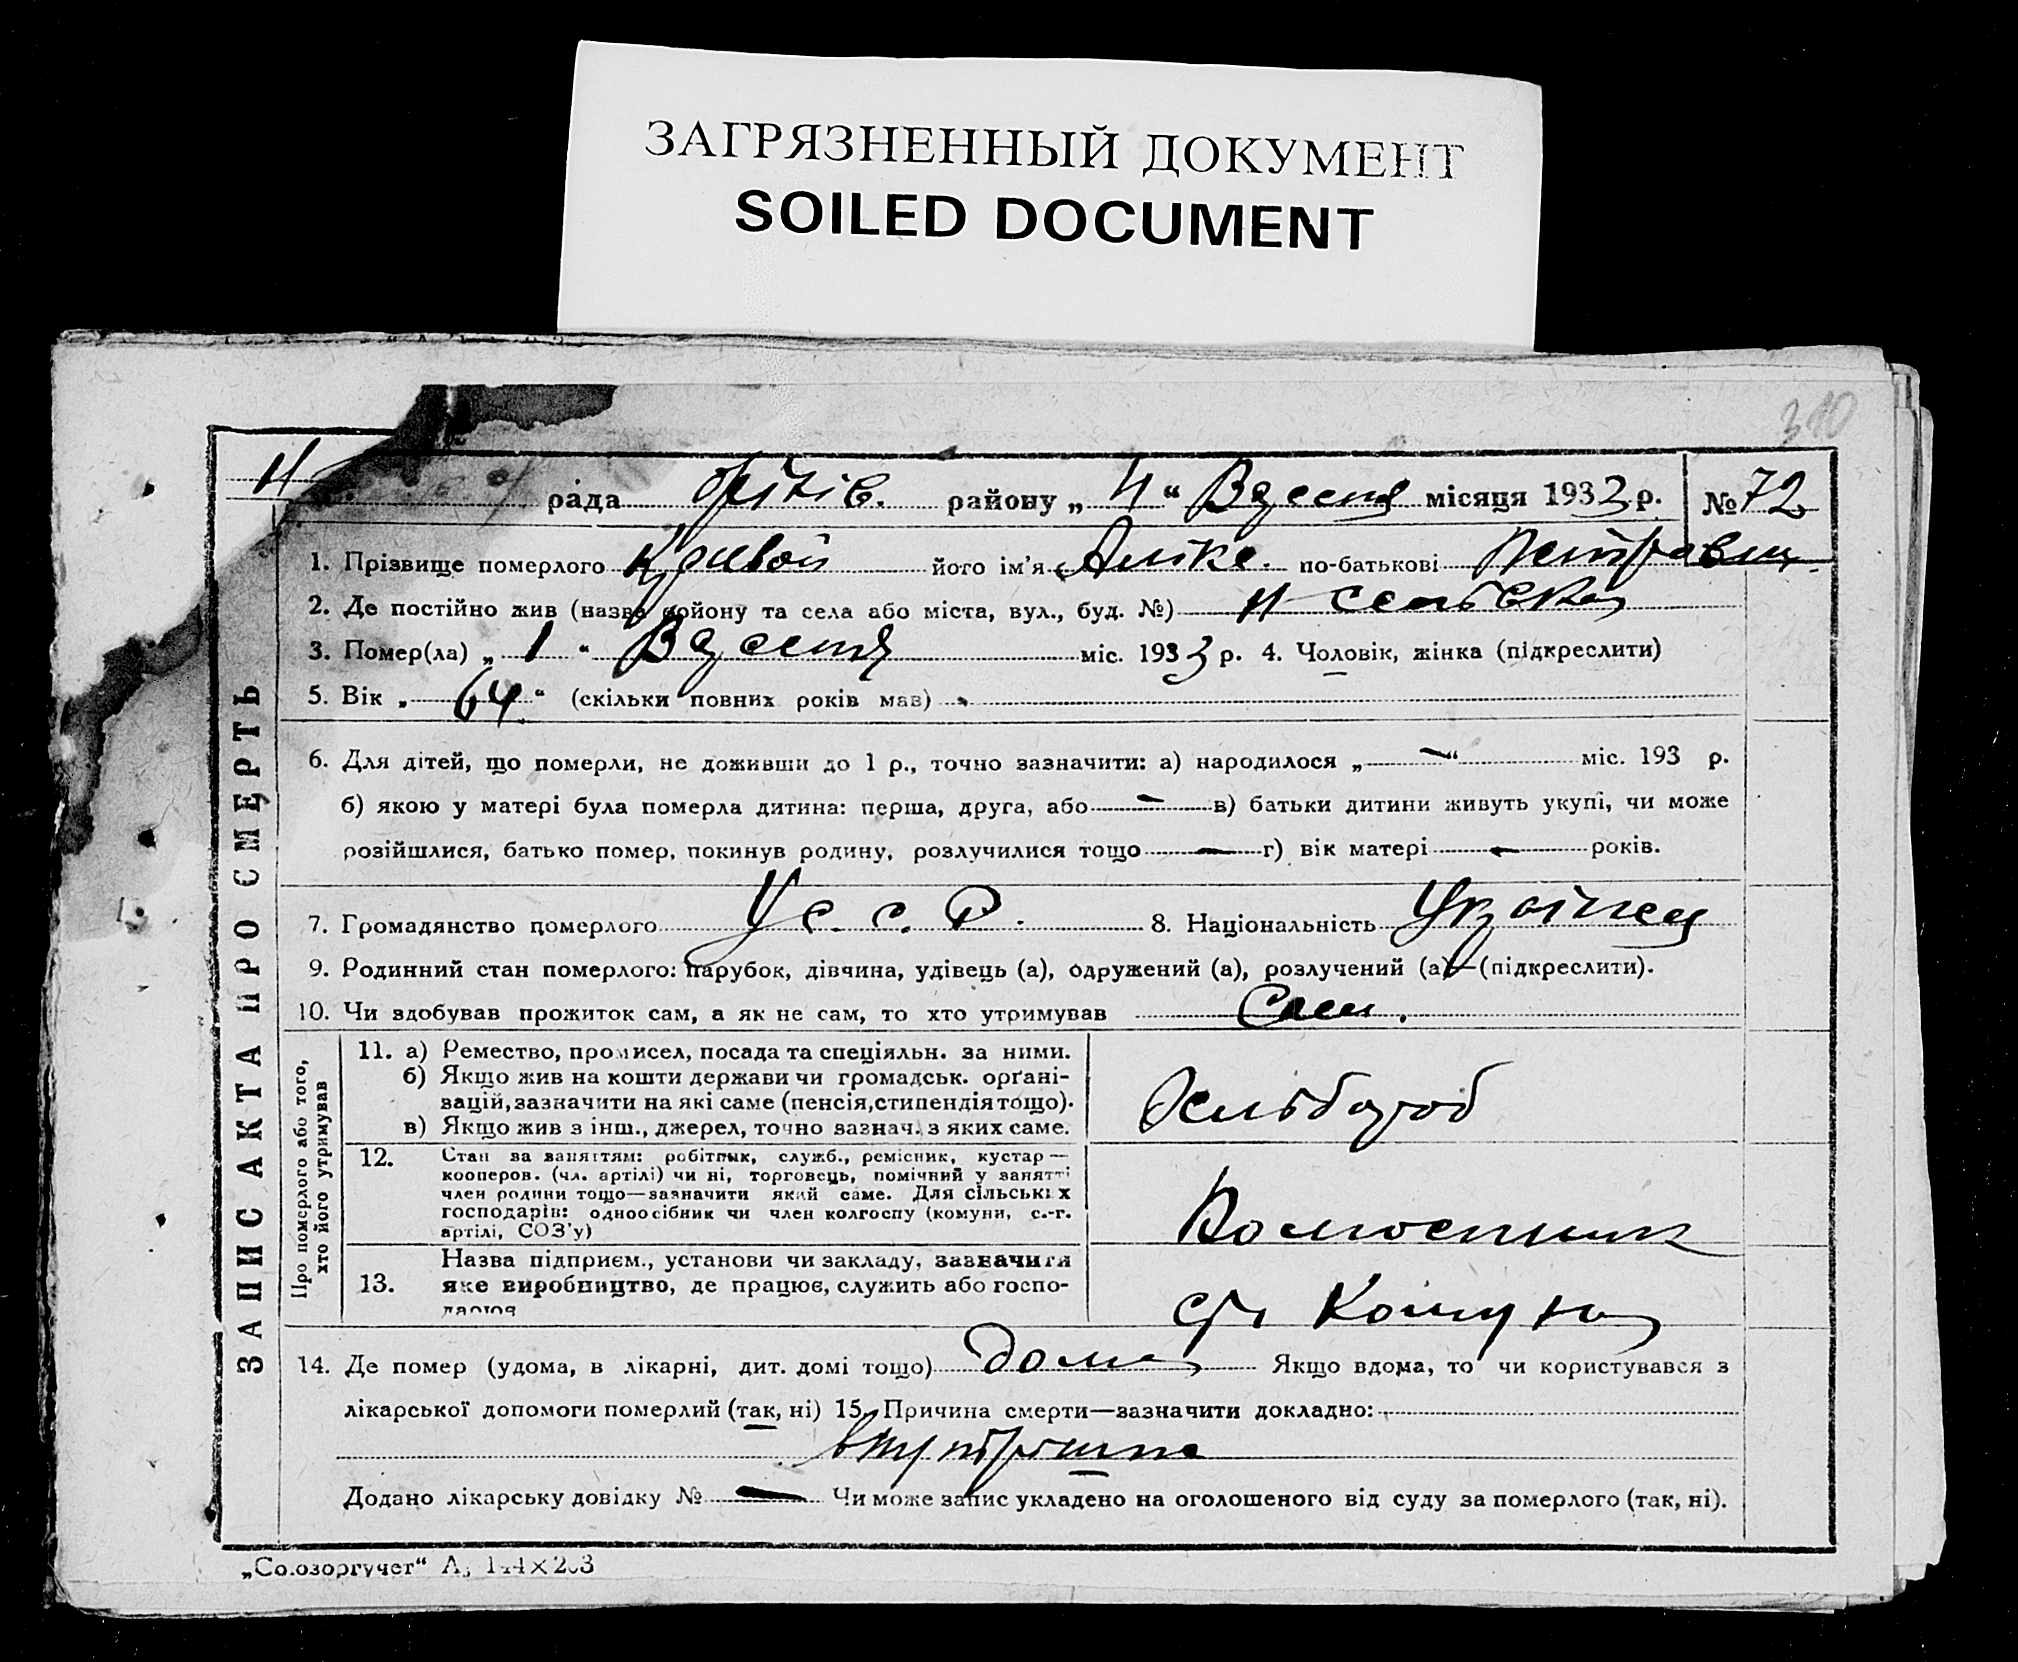 ЗАГРЯЗНЕННЫЙ ДОКУМЕНТ
SOILED DOCUMENT
310
рада Оріхів. району „ 4 “ Вересня місяця 1933 р. № 72
1. Прізвище померлого Кривой його ім'я по-батькові
2. Де постійно жив (назва району та села або міста, вул., буд. №)
3. Помер(ла) „ 1 “ Вересня міс. 1933 р. 4. Чоловік, жінка (підкреслити)
5. Вік „ 64 “ (скільки повних років мав)
6. Для дітей, що померли, не доживши до 1 р., точно зазначити: а) народилося „ — “ міс. 193 р.
б) якою у матері була померла дитина: перша, друга, або — в) батьки дитини живуть укупі, чи може
розійшлися, батько помер, покинув родину, розлучилися тощо — г) вік матері — років.
7. Громадянство померлого У.с.с.Р. 8. Національність Українец
9. Родинний стан померлого: парубок, дівчина, удівець (а), одружений (а), розлучений (а)—(підкреслити).
10. Чи здобував прожиток сам, а як не сам, то хто утримував Сам.
ЗАПИС АКТА ПРО СМЕРТЬ
Про померлого або того,
хто його утримував
11. а) Ремество, промисел, посада та спеціяльн. за ними.
б) Якщо жив на кошти держави чи громадськ. орґані-
зацій, зазначити на які саме (пенсія, стипендія тощо).
в) Якщо жив з інш., джерел, точно зазнач. з яких саме.
Хлібороб
12. Стан за заняттям: робітник, служб., ремісник, кустар—
кооперов. (чл. артілі) чи ні, торговець, помічний у занятті
член родини тощо—зазначити який саме. Для сільських
господарів: одноосібник чи член колгоспу (комуни, с.-г.
артілі, СОЗ'у)
13. Назва підприєм., установи чи закладу, зазначити
яке виробництво, де працює, служить або госпо-
дарює
14. Де помер (удома, в лікарні, дит. домі тощо) дома Якщо вдома, то чи користувався з
лікарської допомоги померлий (так, ні) 15. Причина смерти—зазначити докладно:
Додано лікарську довідку № — Чи може запис укладено на оголошеного від суду за померлого (так, ні).
„Союзоргучет“